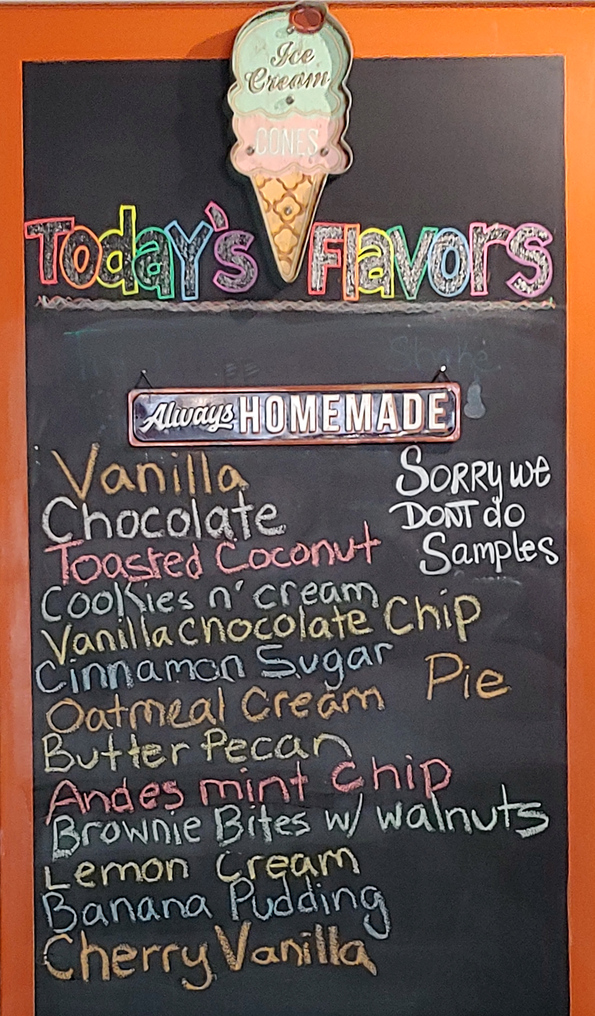 Ice
Cream
CONES
Today's Flavors
Shake
Always HOMEMADE
Vanilla
Chocolate
Toasted Coconut
Cookies n' cream
Vanilla chocolate Chip
Cinnamon Sugar
Oatmeal Cream Pie
Butter Pecan
Andes mint Chip
Brownie Bites w/ walnuts
Lemon Cream
Banana Pudding
Cherry Vanilla
SORRY we
DONT do
Samples